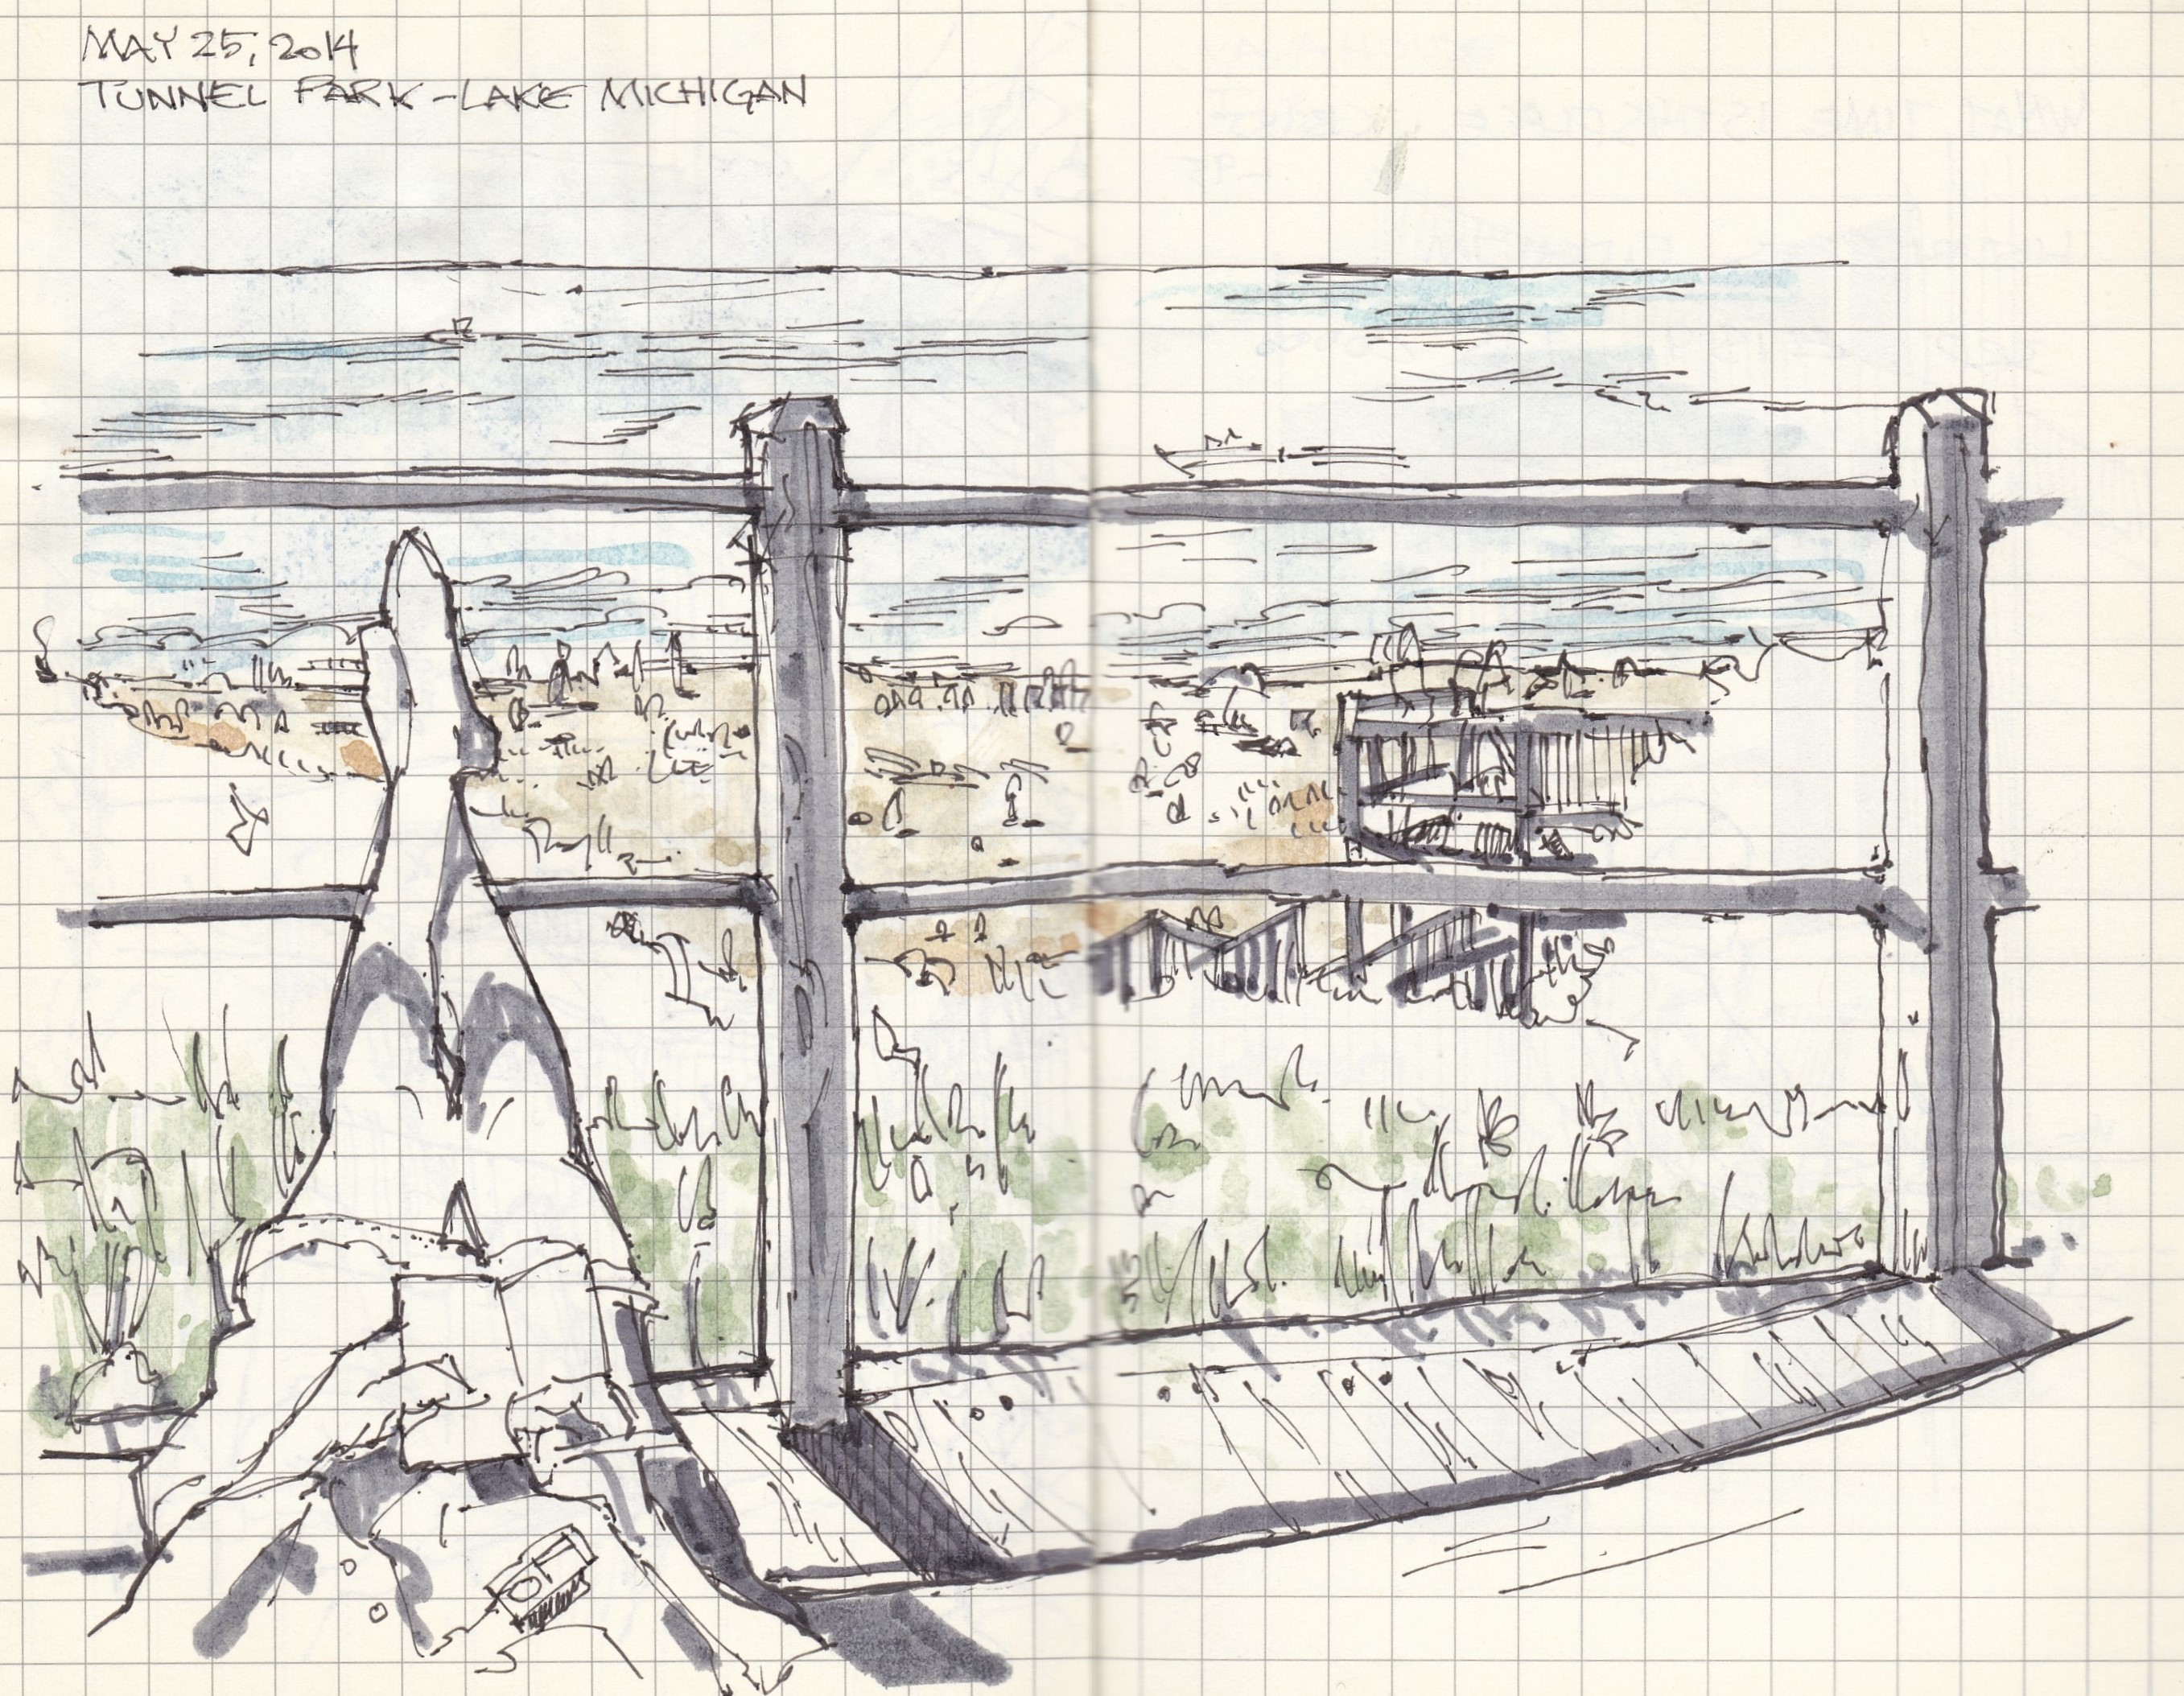 MAY 25, 2014
TUNNEL PARK - LAKE MICHIGAN